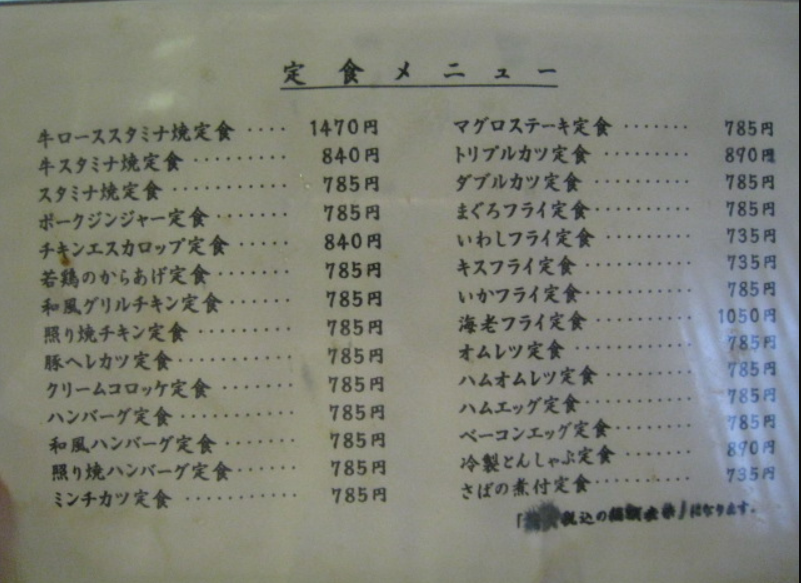 定食メニュー
牛ローススタミナ焼定食 ････ 1470円
牛スタミナ焼定食 ･････････ 840円
スタミナ焼定食 ･･･････････ 785円
ポークジンジャー定食 ･･･････ 785円
チキンエスカロップ定食 ･････ 840円
若鶏のからあげ定食 ･･･････ 785円
和風グリルチキン定食 ･･････ 785円
照り焼チキン定食 ･････････ 785円
豚ヘレカツ定食 ･･････････ 785円
クリームコロッケ定食 ･･･････ 785円
ハンバーグ定食 ･･････････ 785円
和風ハンバーグ定食 ･･･････ 785円
照り焼ハンバーグ定食 ･･････ 785円
ミンチカツ定食 ･･･････････ 785円
マグロステーキ定食 ･･･････ 785円
トリプルカツ定食 ･････････ 890円
ダブルカツ定食 ･･････････ 785円
まぐろフライ定食 ･････････ 785円
いわしフライ定食 ･････････ 735円
キスフライ定食 ･･････････ 735円
いかフライ定食 ･･････････ 785円
海老フライ定食 ･････････ 1050円
オムレツ定食 ･･･････････ 785円
ハムオムレツ定食 ････････ 785円
ハムエッグ定食 ･････････ 785円
ベーコンエッグ定食 ･･･････ 785円
冷製とんしゃぶ定食 ･･･････ 890円
さばの煮付定食 ･････････ 735円
税込の になります。